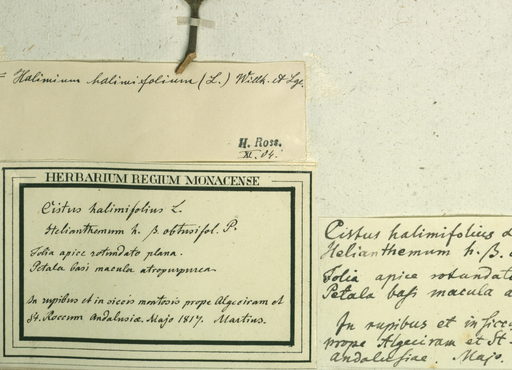 = Halimium halimifolium (L.) Willk. et Lge.
H. Ross.
XI. 04.
HERBARIUM REGIUM MONACENSE
Cistus halimifolius L.
Helianthemum h. β obtusifol. P.
Folia apice rotundato plana.
Petala basi macula atropurpurea.
In rupibus et in siccis montosis prope Algeciram et
St. Roccum Andalusiæ. Majo 1817. Martius.
Cistus halimifolius L
Helianthemum h. β.
Folia apice rotundato
Petala basi macula a
In rupibus et in sicc
prope Algeciram et St.
Andalusiae. Majo.